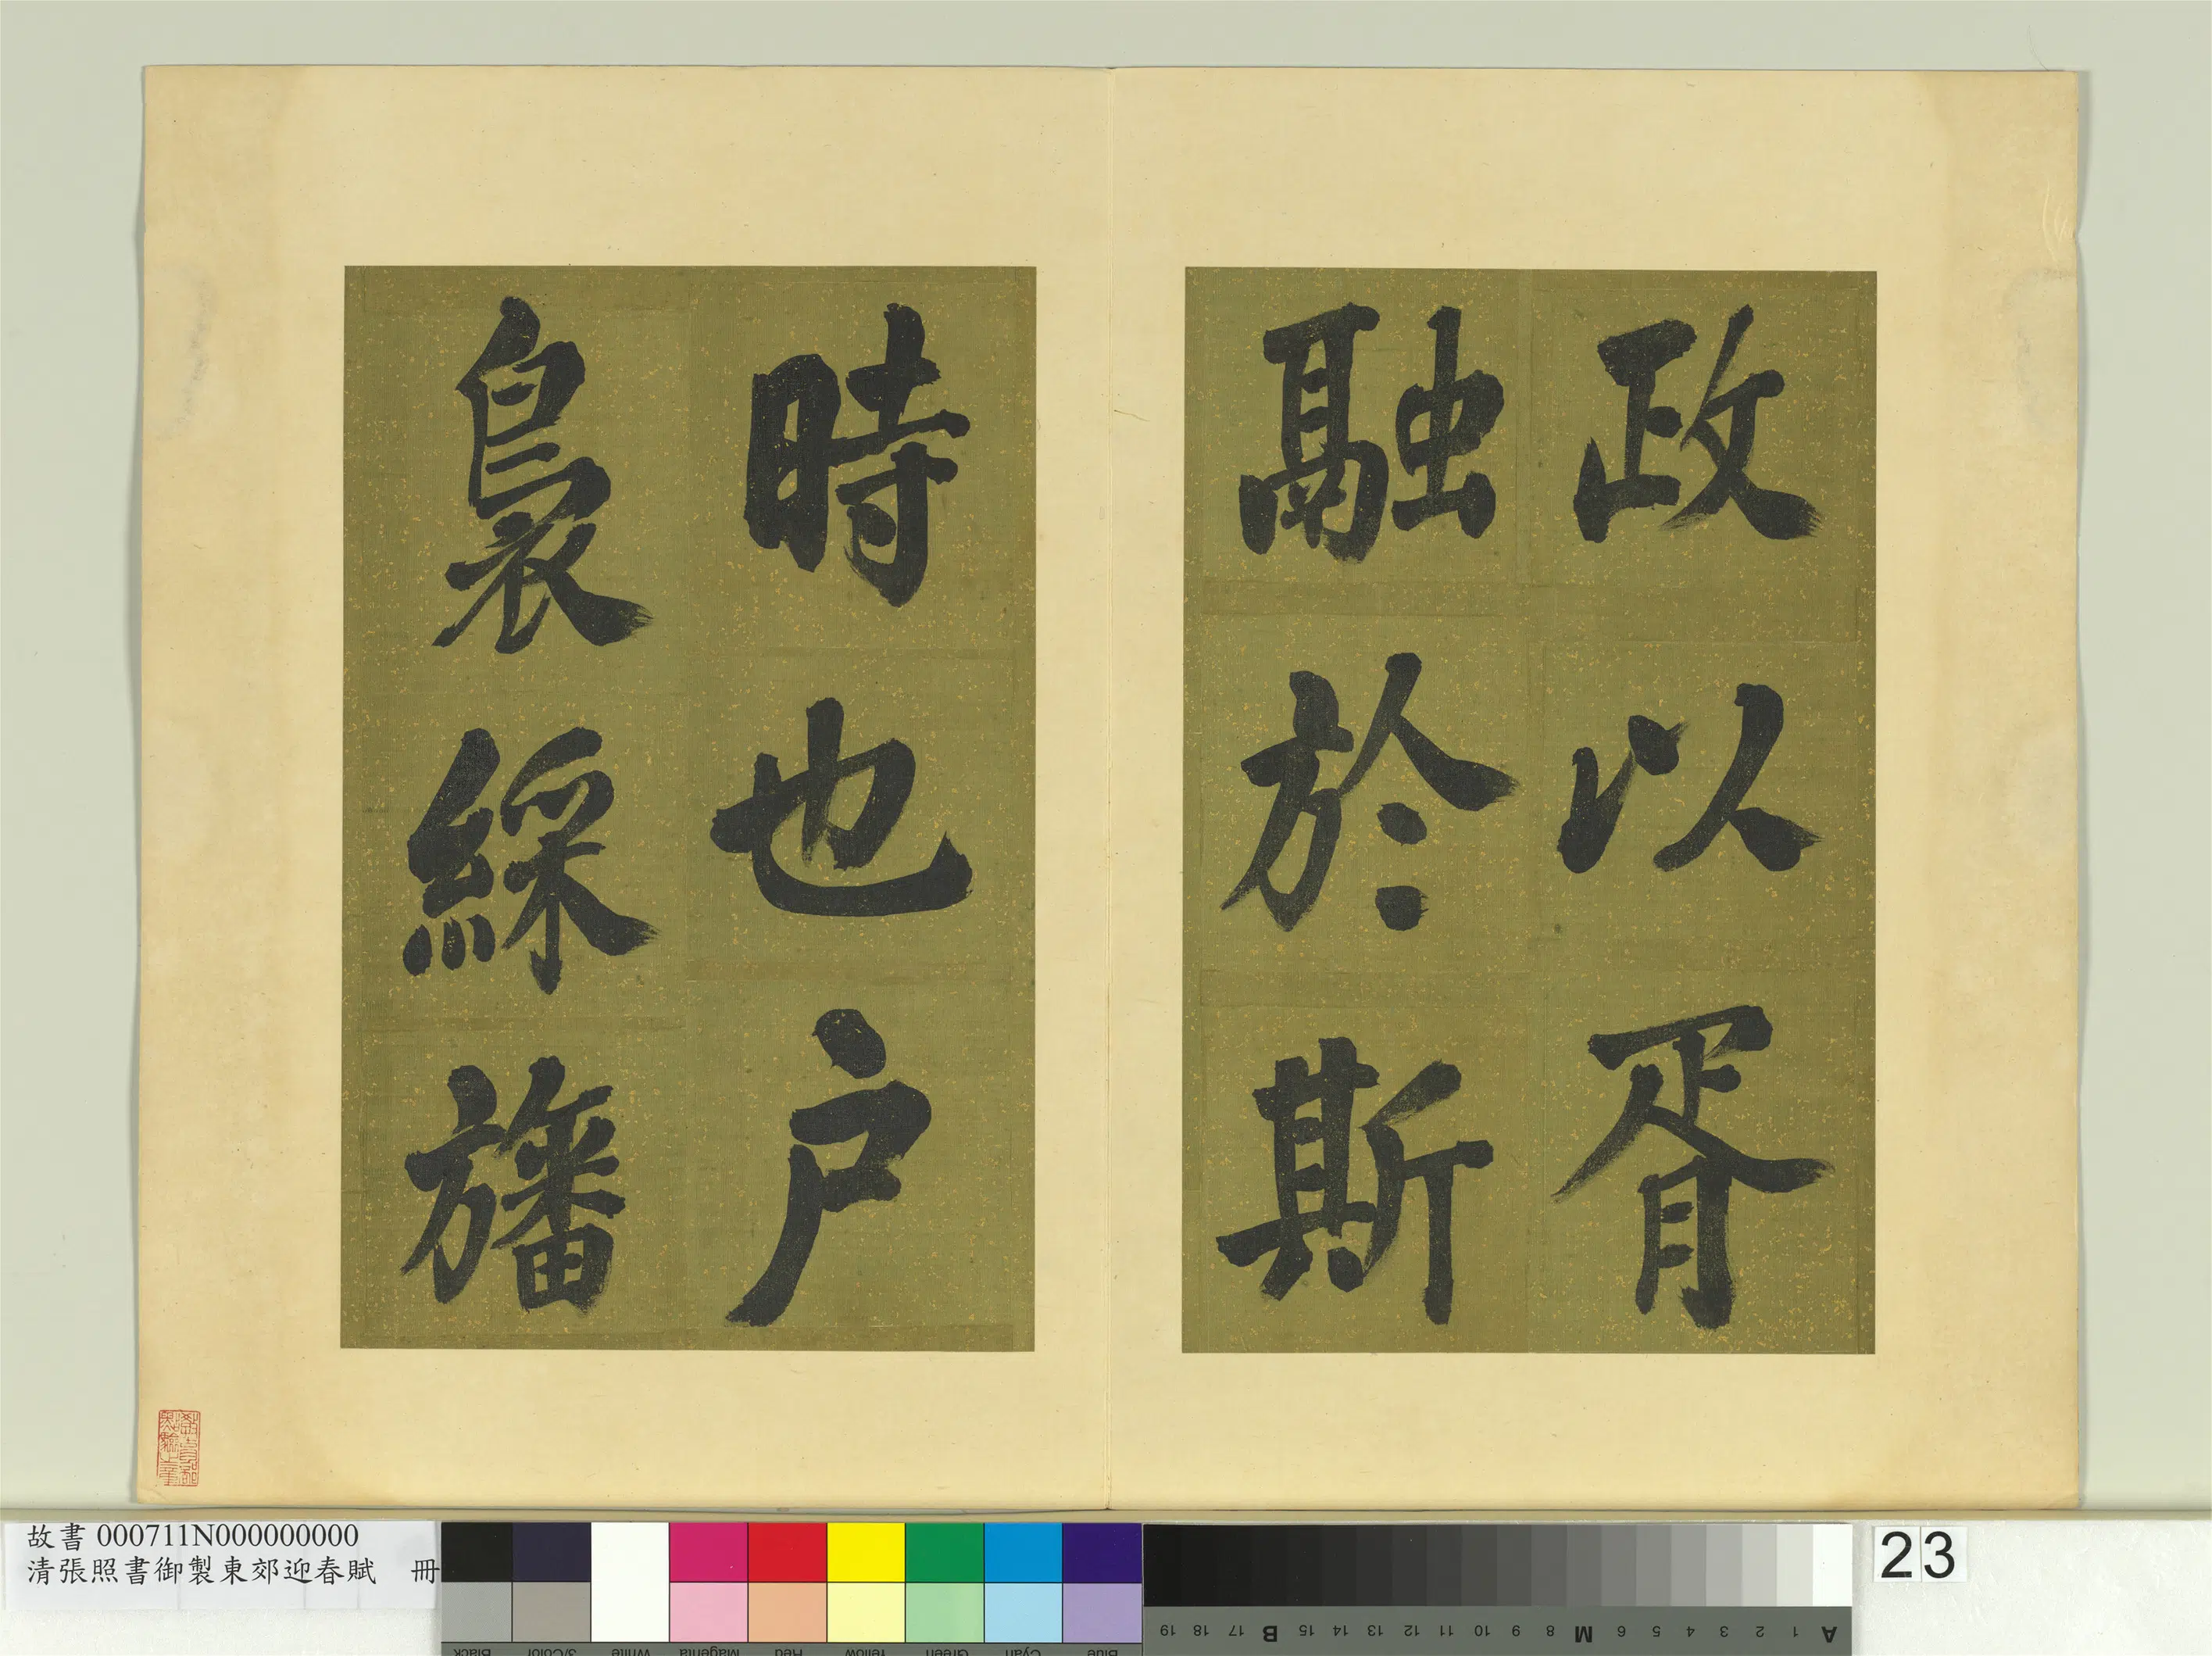 政以胥
融於斯
時也户
裊綵旛
故書 000711N000000000
清張照書御製東郊迎春賦 冊
23
Black 3/Color White Magenta Red Yellow Green Cyan Blue
19 18 17 B 15 14 13 12 11 10 9 8 M 6 5 4 3 2 1 A